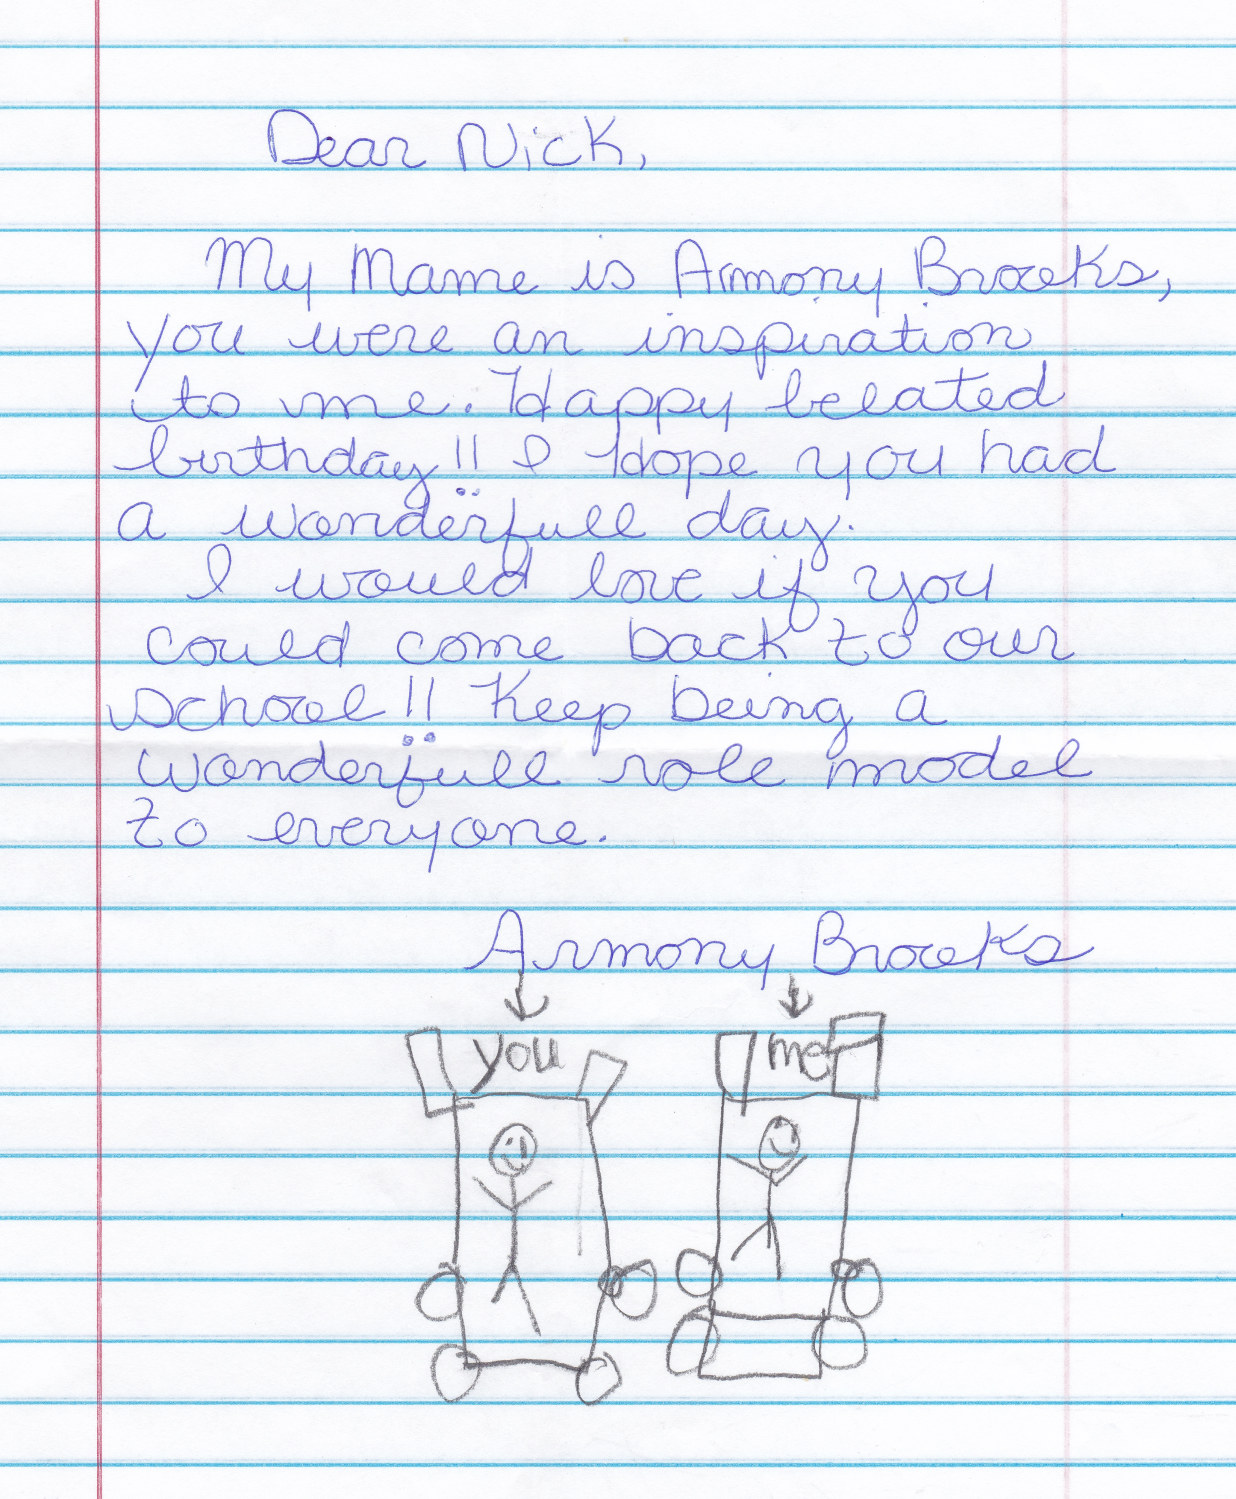 Dear Nick,
My Mame is Armony Brooks,
you were an inspiration
to me. Happy belated
birthday!! I Hope you had
a wonderfull day.
I would love if you
could come back to our
school!! Keep being a
wonderfull role model
to everyone.
Armony Brooks
you me